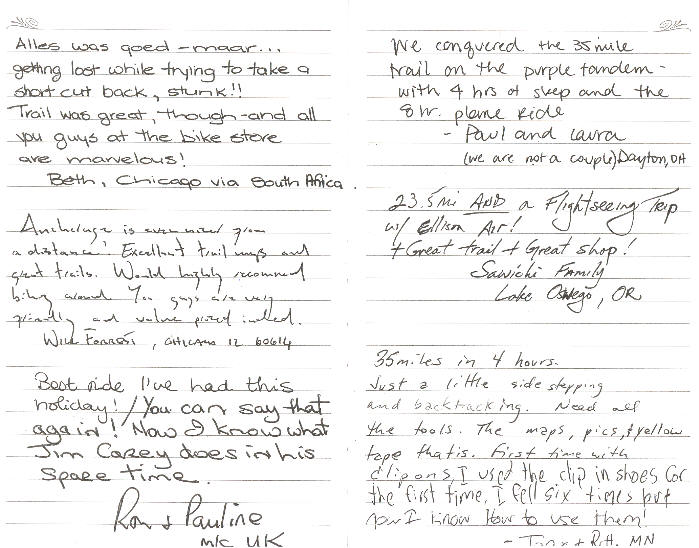 Alles was goed - maar...
getting lost while trying to take a
short cut back, stunk!!
Trail was great, though - and all
you guys at the bike store
are marvelous!
Beth, Chicago via South Africa.
Anchorage is even nicer from
a distance! Excellent trail maps and
great trails. Would highly recommend
biking around. You guys are very
friendly and value priced indeed.
Will Forrest, CHICAGO IL 60614
Best ride I've had this
holiday! / You can say that
again! Now I know what
Jim Carey does in his
spare time.
Ron & Pauline
m/c UK
We conquered the 35 mile
trail on the purple tandem -
with 4 hrs of sleep and the
8 hr. plane ride
- Paul and Laura
(we are not a couple) Dayton, OH
23.5 mi AND a Flightseeing Trip
w/ Ellison Air!
+ Great trail + Great shop!
Sawicki Family
Lake Oswego, OR
35 miles in 4 hours.
Just a little side stepping
and backtracking. Need all
the tools. The maps, pics, & yellow
tape that is. First time with
clip ons, I used the clip in shoes for
the first time, I fell six times but
now I know how to use them!
MN